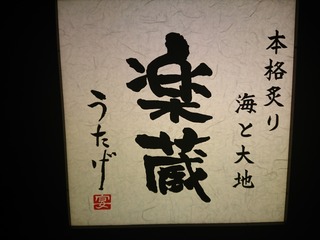 本格炙り
海と大地
楽蔵
うたげ
宴